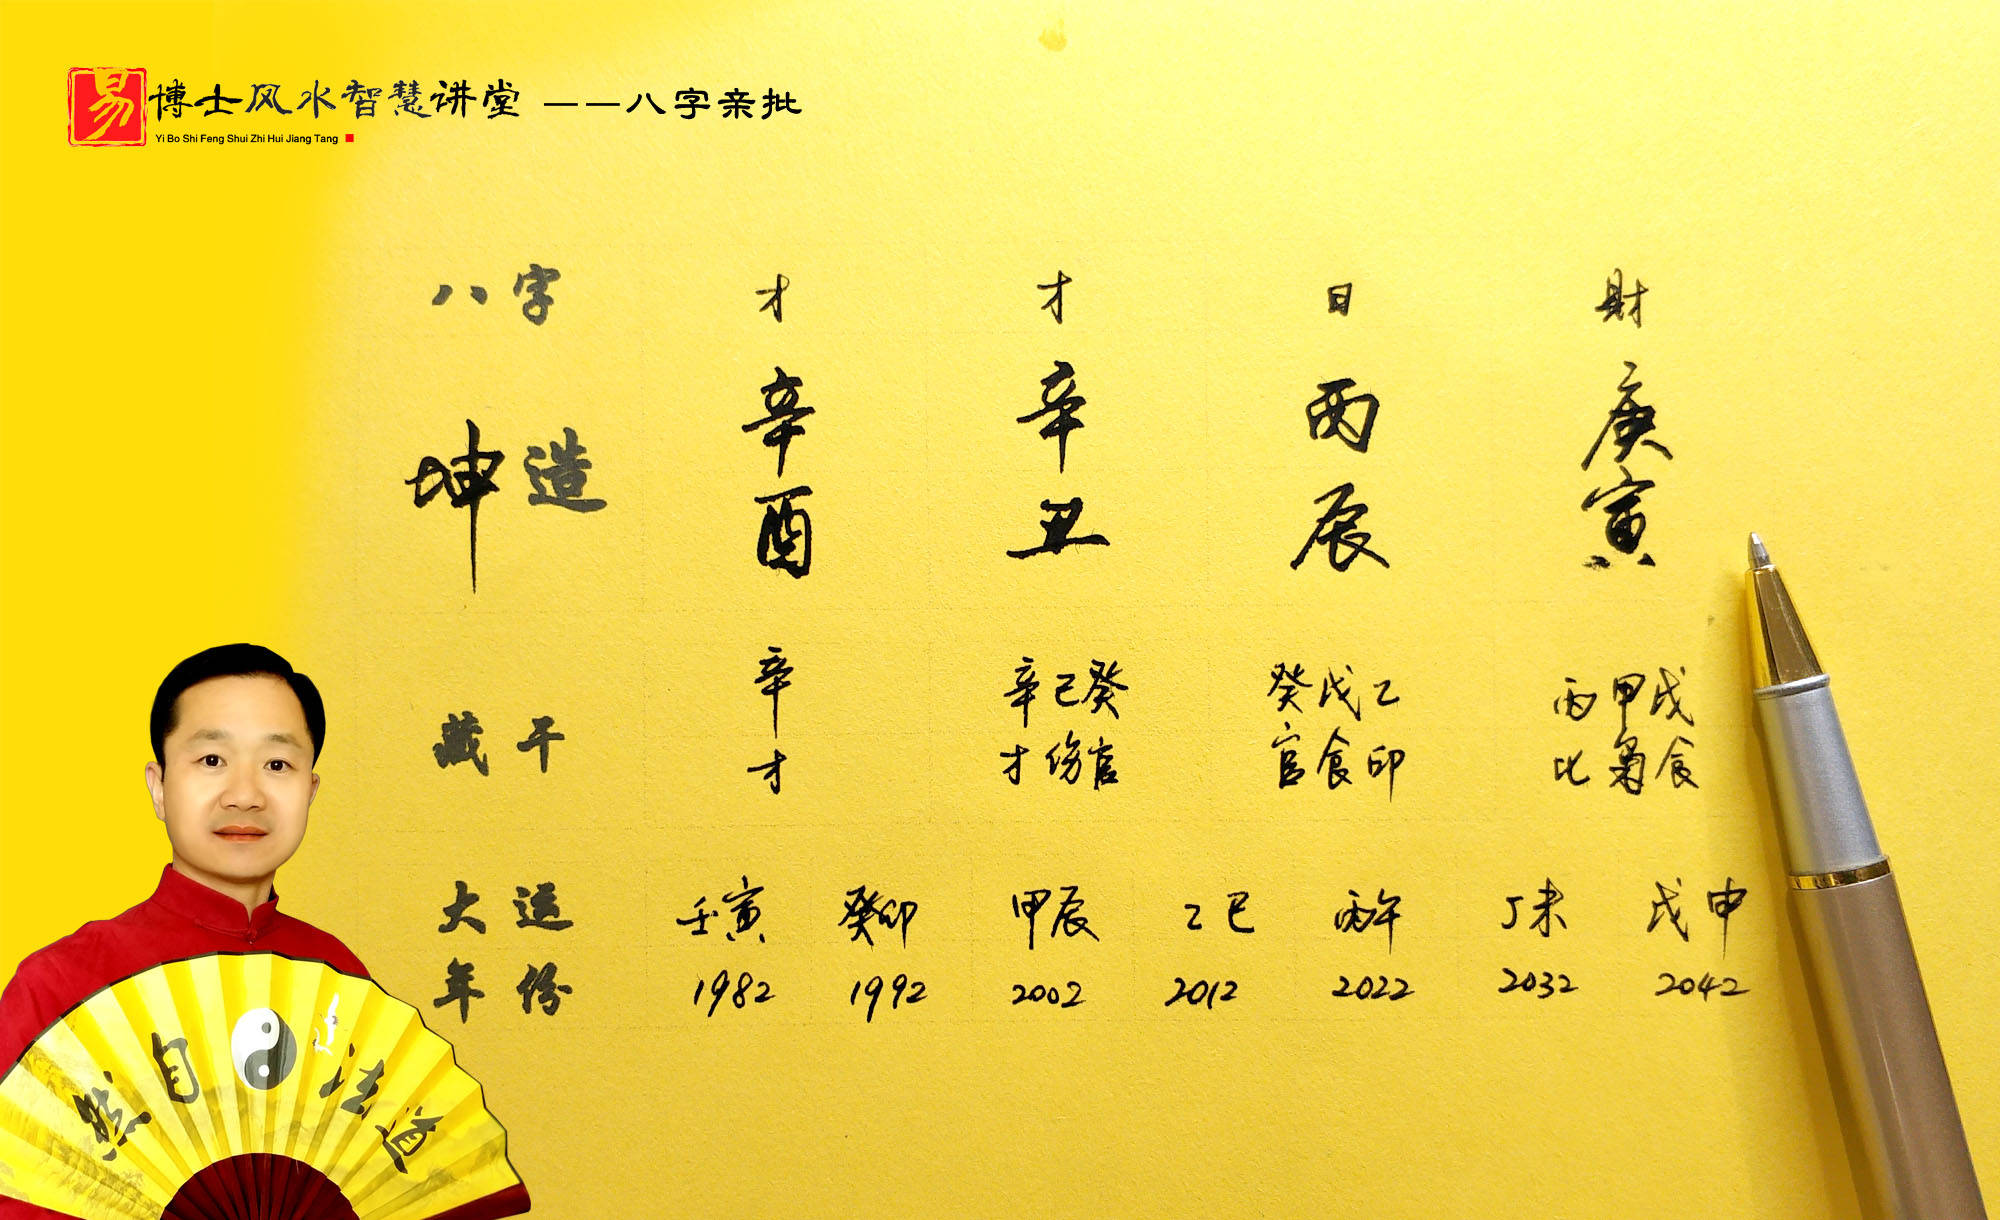 易博士风水智慧讲堂 ——八字亲批
Yi Bo Shi Feng Shui Zhi Hui Jiang Tang
八字 才 才 日 财
坤造 辛酉 辛丑 丙辰 庚寅
藏干 辛 辛己癸 癸戊乙 丙甲戊
才 才伤官 官食印 比枭食
大运 壬寅 癸卯 甲辰 乙巳 丙午 丁未 戊申
年份 1982 1992 2002 2012 2022 2032 2042
道法自然